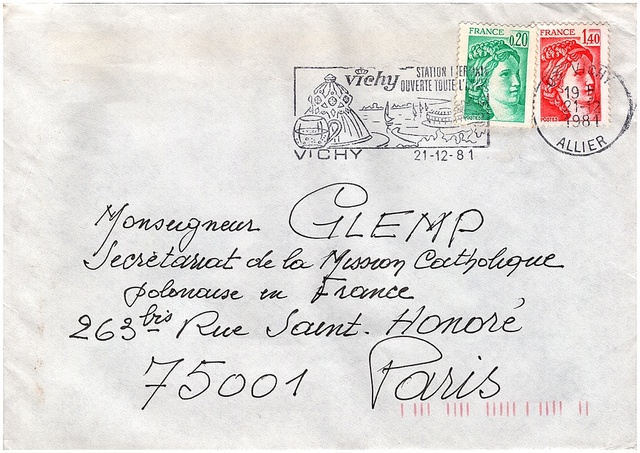 FRANCE 0,20
FRANCE 1,40
POSTES
POSTES
Vichy STATION
OUVERTE TOUTE
VICHY 21-12-81
19 H
21-12
1981
ALLIER
Monseigneur GLEMP
Secrétariat de la Mission Catholique
polonaise en France
263 bis Rue Saint-Honoré
75001 Paris